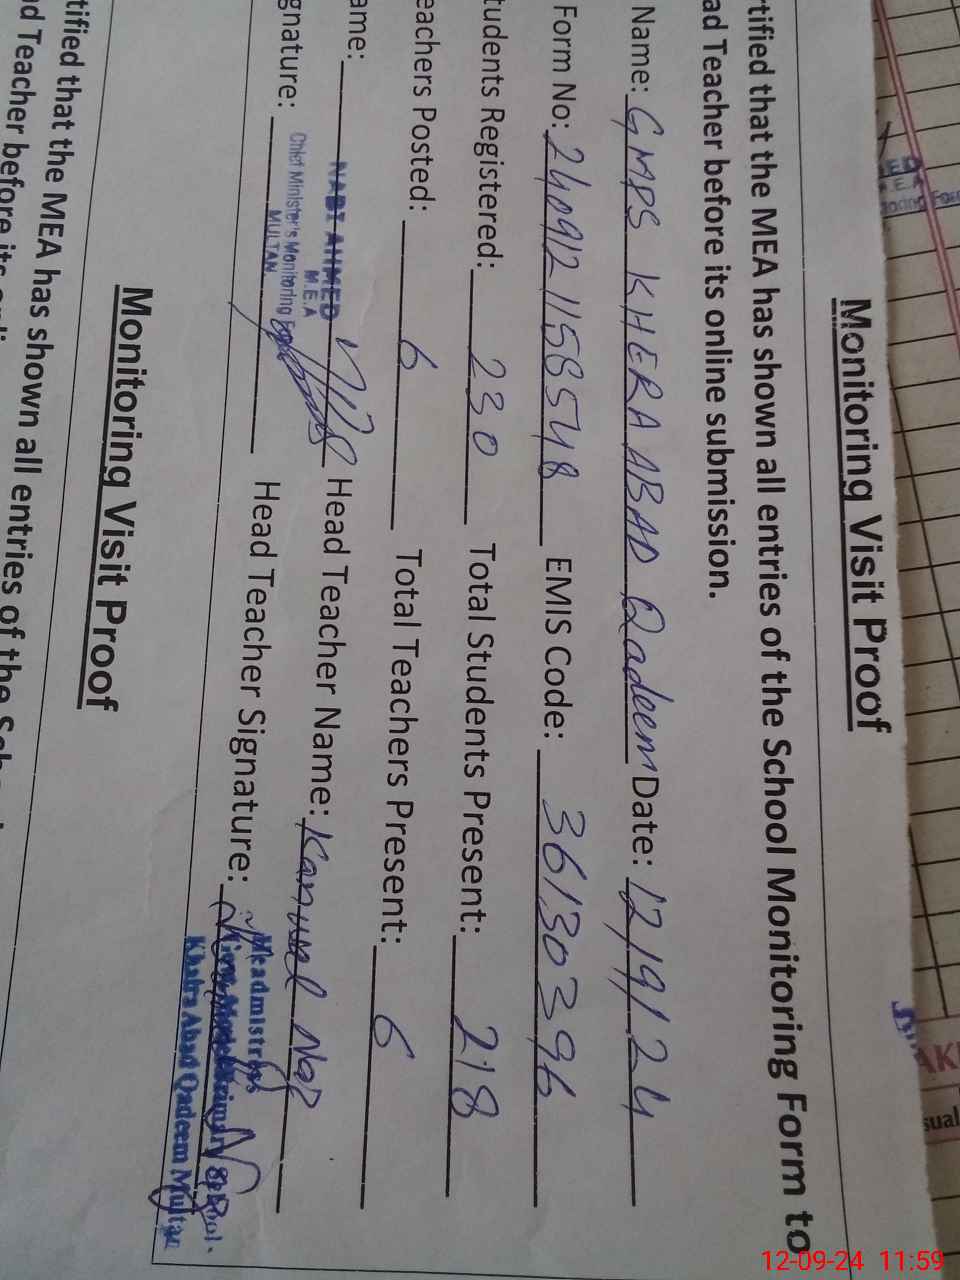 Monitoring Visit Proof
rtified that the MEA has shown all entries of the School Monitoring Form to
ad Teacher before its online submission.
Name: GMPS KHERA ABAD Qadeem Date: 12/9/24
Form No: 2409121158548 EMIS Code: 36130396
tudents Registered: 230 Total Students Present: 218
eachers Posted: 6 Total Teachers Present: 6
ame: NABI AHMED Head Teacher Name: Kanwal Naz
M.E.A
gnature: Chief Minister's Monitoring Head Teacher Signature:
MULTAN
Headmistress
School.
Khaira Abad Qadeem Multan
Monitoring Visit Proof
tified that the MEA has shown all entries of the
ad Teacher before its
sual
12-09-24 11:59